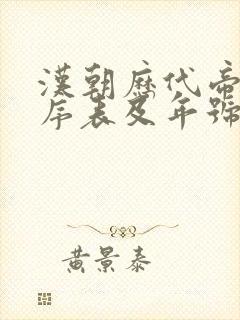 漢朝歷代帝
序表及年號
黃景泰